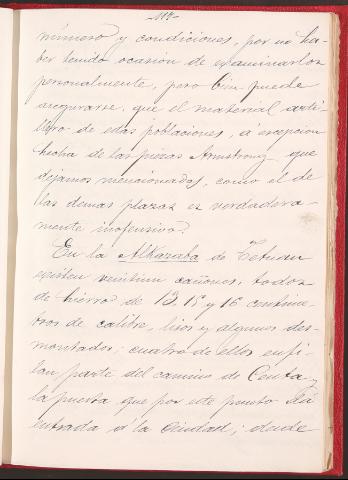 -119-
número y condiciones, por no ha-
ber tenido ocasion de examinarlos
personalmente, pero bien puede
asegurarse, que el material arti-
llero de estas poblaciones, á excepcion
hecha de las piezas Armstrong que
dejamos mencionadas, como el de
las demas plazas es verdadera-
mente inofensivo.
En la Alkazaba de Tetuan
existen veintiun cañones, todos
de hierro de 13, 15 y 16 centime-
tros de calibre, lisos y algunos des-
montados; cuatro de ellos enfi-
lan parte del camino de Ceuta y
la puerta que por este punto dá
entrada á la Ciudad; desde